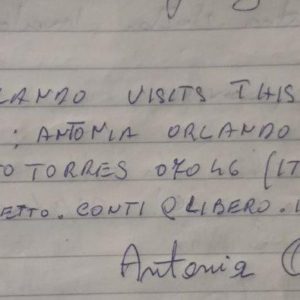 LANDO VISITS THIS
: ANTONIA ORLANDO
TO TORRES 07046 (IT
ETTO.CONTI@LIBERO.I
Antonia